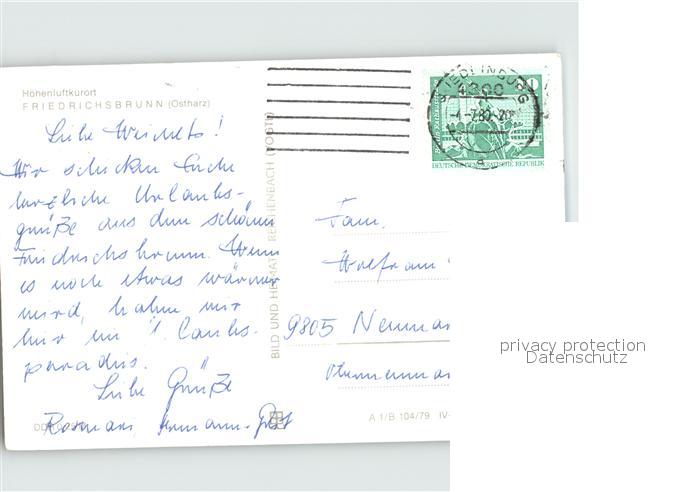 Höhenluftkurort
FRIEDRICHSBRUNN (Ostharz)
Wir schicken Euch
herzliche Urlaubs-
grüße aus dem schönen
Friedrichsbrunn. Wenn
es noch etwas wärmer
wird, haben wir
hier ein Urlaubs-
paradies.
Liebe Grüße
BILD UND HEIMAT REICHENBACH (VOGTL)
QUEDLINBURG
4300
DEUTSCHE DEMOKRATISCHE REPUBLIK
Fam.
Wolfram
9805
A 1/B 104/79 IV-
privacy protection
Datenschutz